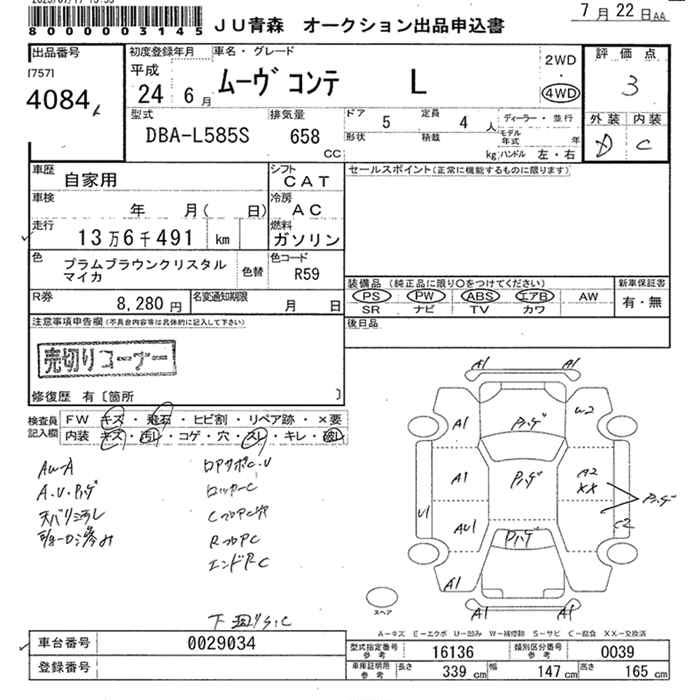 800000003145
JU青森 オークション出品申込書
7月22日AA
出品番号
[757]
4084
初度登録年月
平成
24 6月
車名・グレード
ムーヴコンテ L
2WD
・
4WD
評価点
3
型式
DBA-L585S
排気量
658
CC
ドア
5
定員
4人
形状
積載
kg
ディーラー・並行
モデル年式
年
ハンドル 左・右
外装 内装
D C
車歴
自家用
シフト
CAT
車検
年 月( 日)
冷房
AC
走行
13万6千491 km
燃料
ガソリン
色
プラムブラウンクリスタル
マイカ
色替
色コード
R59
R券
8,280円
名変通知期限
月 日
セールスポイント(正常に機能するものに限ります)
装備品(純正品に限り○をつけてください)
PS PW ABS エアB AW
SR ナビ TV カワ
新車保証書
有・無
後日品
注意事項申告欄(不具合内容等は具体的に記入して下さい)
売切りコーナー
修復歴 有〔箇所 〕
検査員
記入欄
FW キズ・飛石・ヒビ割・リペア跡・×要
内装 キズ・汚レ・コゲ・穴・スレ・キレ・破レ
AW-A
A.U.Pハゲ
天バリ汚レ
ロッカーC
エンドPC
下回りS,C
A1 A1
A1 Pハゲ W2
A1 Pハゲ A2
XX
Pハゲ
U1 AU1 Pハゲ C2
A1
A1 A1
スペア
A-キズ E-エクボ U-凹み W-補修跡 S-サビ C-腐食 XX-交換済
車台番号
0029034
登録番号
型式指定番号
参考
16136
類別区分番号
参考
0039
車庫証明所
参考
長さ
339 cm
幅
147 cm
高さ
165 cm